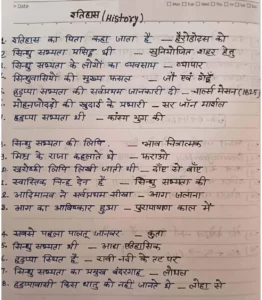 Date
इतिहास (History)
इतिहास का पिता कहा जाता है – हेरोडोटस को
सिन्धु सभ्यता प्रसिद्ध थी – सुनियोजित शहर हेतु
सिन्धु सभ्यता के लोगों का व्यवसाय – व्यापार
सिन्धुवासियों की मुख्य फसल – जौ एवं गेहूँ
हड़प्पा सभ्यता की सर्वप्रथम जानकारी दी – चार्ल्स मैसन
मोहनजोदड़ो की खुदाई के प्रभारी – सर जॉन मार्शल
हड़प्पा सभ्यता थी – कांस्य युग की
सिन्धु सभ्यता की लिपि – भाव चित्रात्मक
मिश्र के राजा कहलाते थे – फराओ
खरोष्ठी लिपि लिखी जाती थी – दाँए से बाँए
स्वास्तिक चिन्ह देन है – सिन्धु सभ्यता की
आदिमानव ने सर्वप्रथम सीखा – आग जलाना
आग का आविष्कार हुआ – पुरापाषाण काल में
सबसे पहला पालतू जानवर – कुत्ता
सिन्धु सभ्यता थी – आद्य ऐतिहासिक
हड़प्पा स्थित है – रावी नदी के तट पर
सिन्धु सभ्यता का प्रमुख बंदरगाह – लोथल
हड़प्पावासी किस धातु को नहीं जानते थे – लोहा से